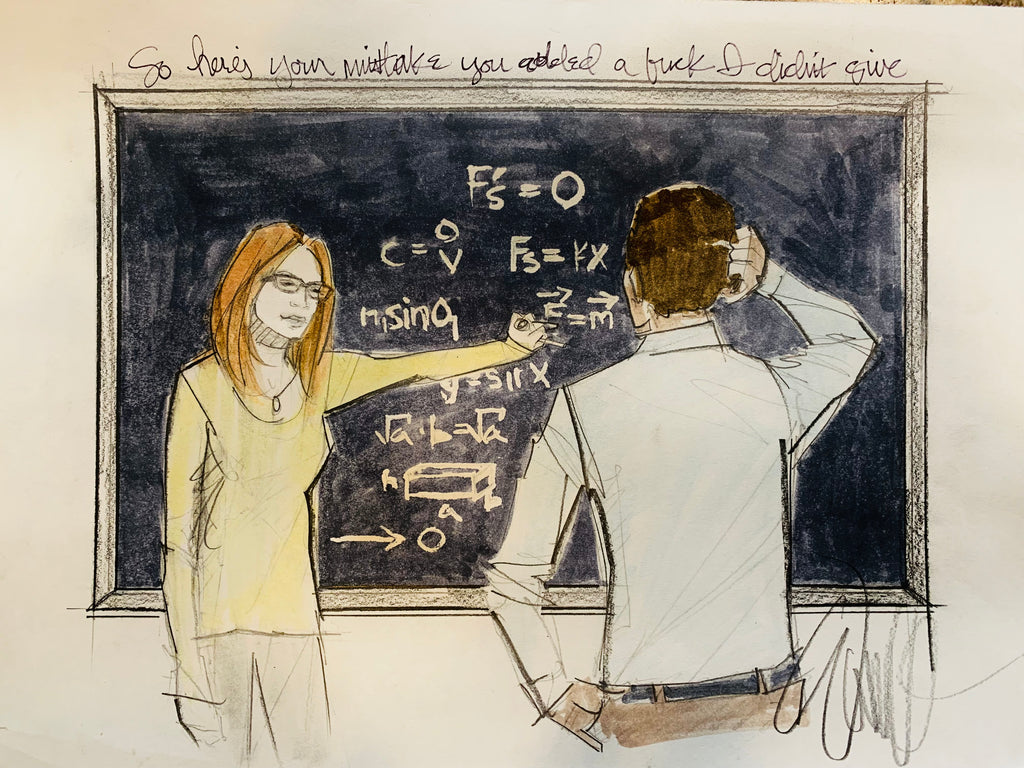 So here's your mistake you added a fuck I didn't give
F's = 0
C = 0/V Fs = kx
n₁sinθ₁ F = m
y = sin x
√a · b = √a
h
b
a
→ 0